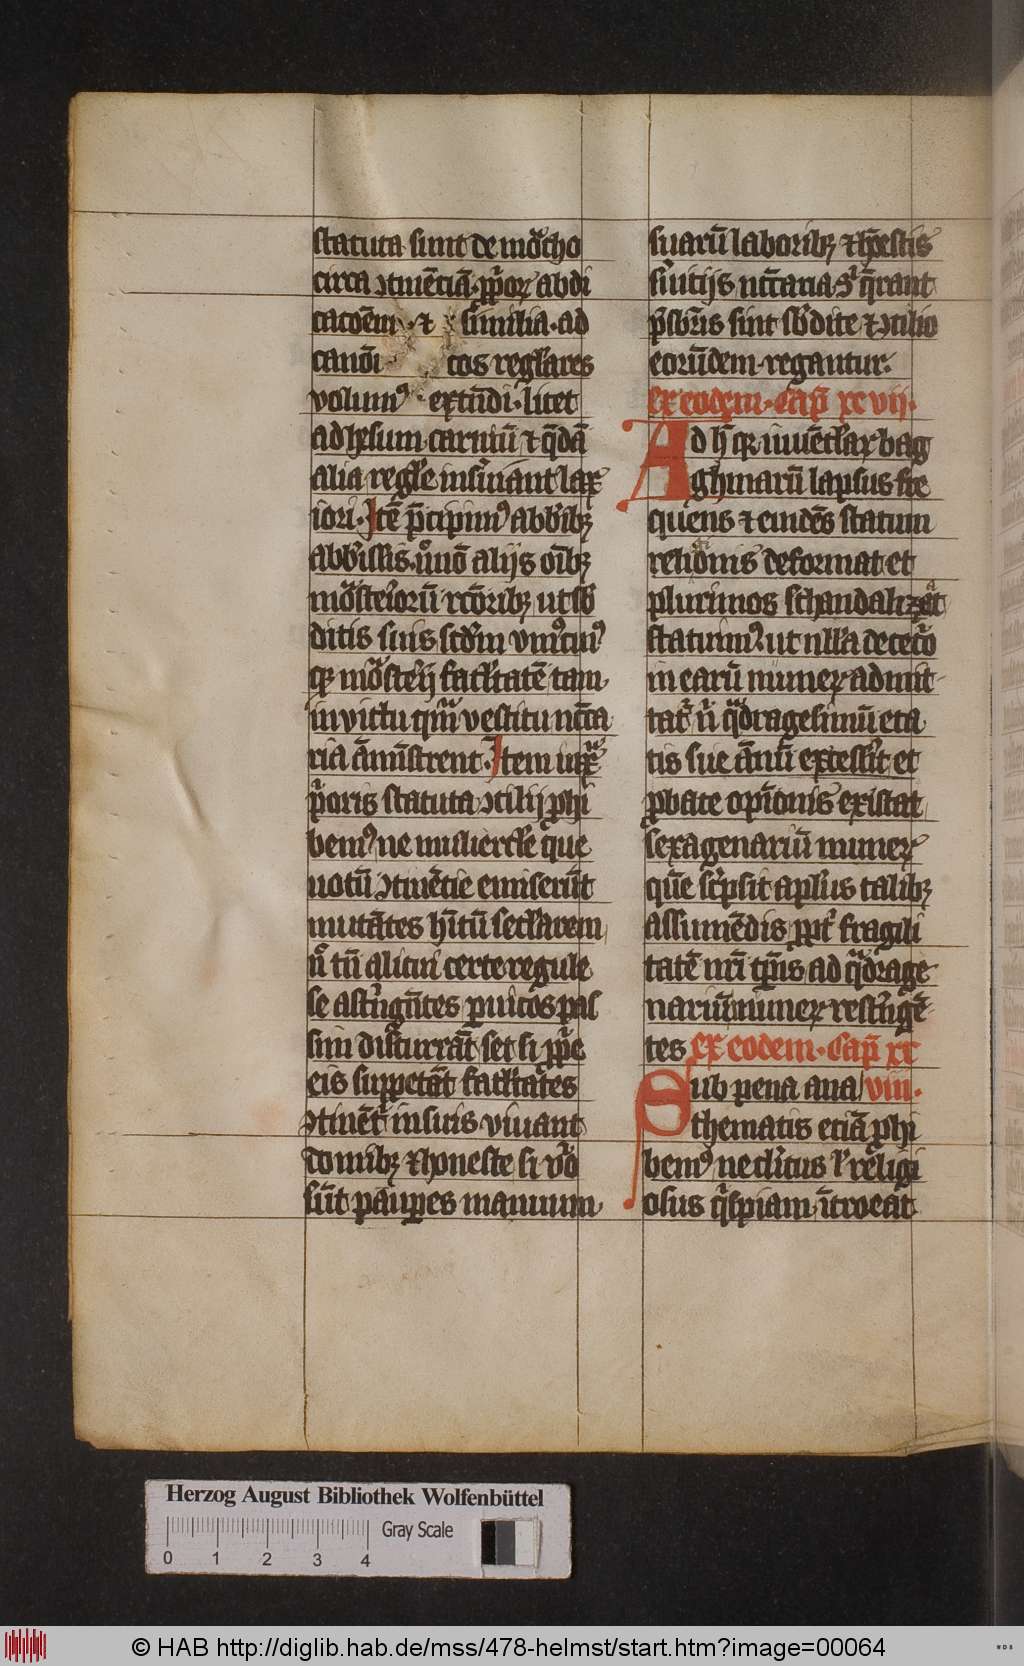 statuta sunt de mo͛cho
circa ↄtinẽtiã· ꝓp̃oꝝ abdi
cacoẽm · ⁊ similia · ad
canõi cos regl̃ares
volum⁹ · extñdi · licet
ad hẽsum carniũ ⁊ q̃dã
alia regl̃e inſ͛uiant lax
iori · Itẽ p̃cipim⁹ abb̃ibꝫ
abb̃issis · n̄ oĩo alijs oĩbꝫ
mõsteͥoꝝ rc̃oribꝫ ut sb̃
ditis suis scd̃m vniꝰcui⁹
qꝫ mõst͛ij facl̃tatẽ tam
in victu qm̃ vestitu nc̃ca
ria ãmĩstrent · Item iux̃
p̃oris statuta ↄcilij ꝓhi
bem⁹ ne muliercl̃e que
uotũ ↄtinẽtie emiser̃t
mutãtes hĩtũ secl̃arem
n̄ tñ alicui certe regule
se ast͛ngẽtes ꝑ uicos pas
sim discurrãt set si ꝓp̃e
eis suppetãt facl̃tates
ↄtinẽt͛ in suis viuant
domibꝫ ⁊ honeste si v͛o
sũt pauꝑes manuum
suarũ laboribꝫ ⁊ hõestis
s͛uitijs nc̃caria s͛ q̃rant
p̃sbr̃is sint sb̃dite ⁊ ↄcilio
eorũdem regantur ·
ex eodem · Cap̃ xc vij ·
Ad h̃ qꝫ iuuẽcl̃aꝝ bag
ghinarũ lapsus fre
quens ⁊ euidẽs statum
religiõnis deformat et
plurimos schandalizat
statuim⁹ · ut nl̃la de cet͛o
in earũ numeꝝ admit
tat͛ n̄ q̃dragesimũ eta
tis sue ãnũ excess͛it et
ꝓbate opiõnis existat
sexagenariũ numeꝝ
quẽ sc͛psit apl̃us talibꝫ
assumẽdis ꝓpt͛ fragili
tatẽ nr̃i tp̃is ad q̃drage
nariũ numeꝝ rest͛ngẽ
tes ex eodem · Cap̃ xc
Sub pena ana viii ·
thematis eciã ꝓhi
bem⁹ ne cl͛icus l̃ religi
osus q̃spiam ĩtroeat
Herzog August Bibliothek Wolfenbüttel
Gray Scale
0 1 2 3 4
© HAB http://diglib.hab.de/mss/478-helmst/start.htm?image=00064